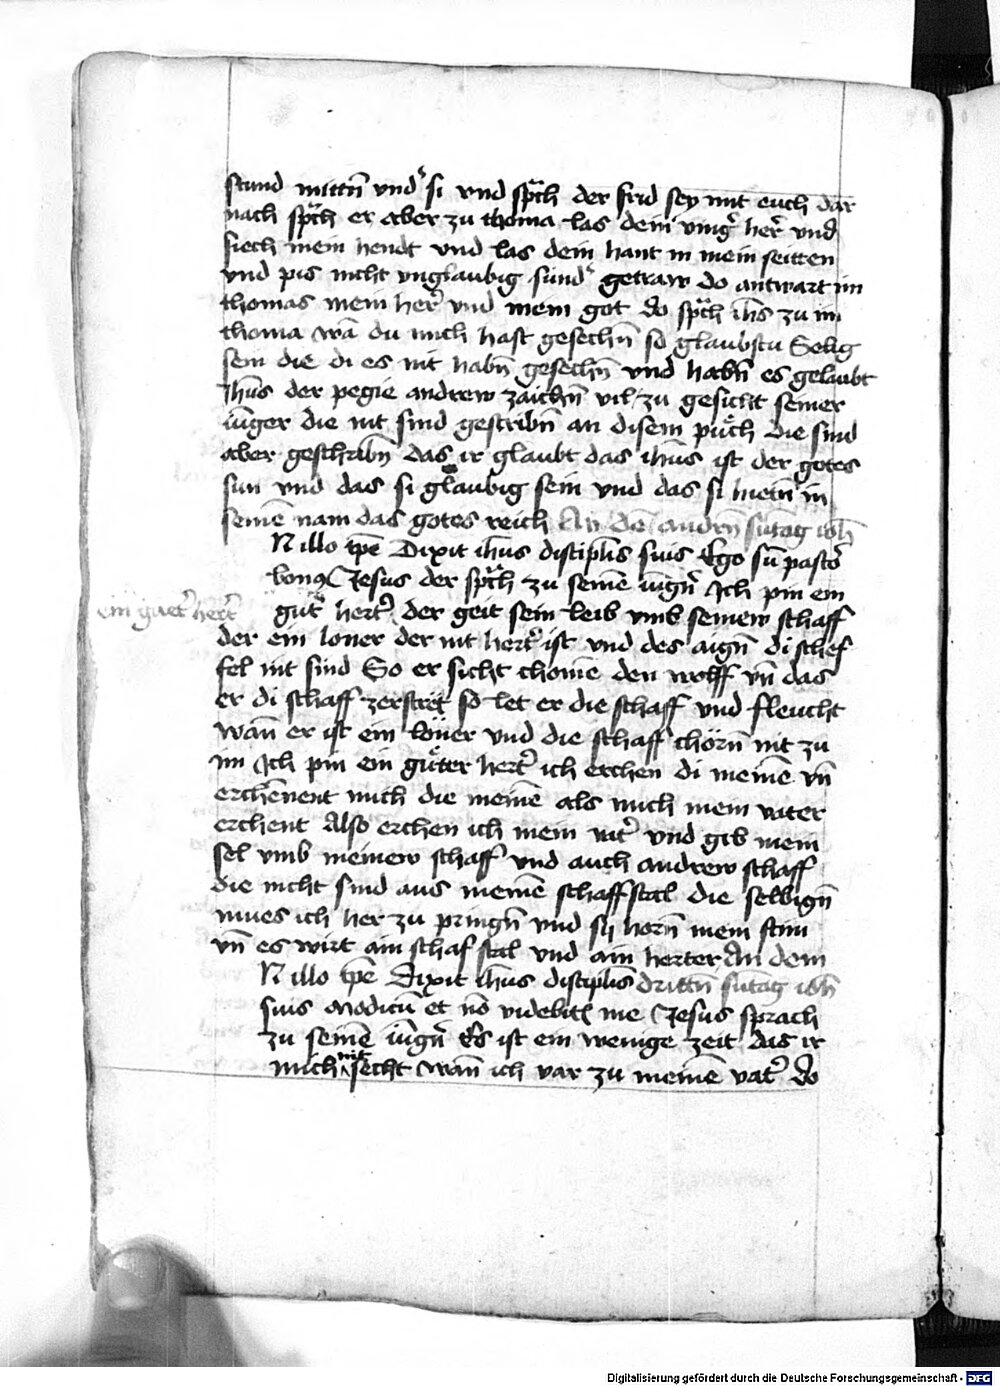 stund mittn̄ vnd' si vnd sprach der frid sey mit euch dar
nach sprach er aber zu thoma las dein ving' her' vnd
siech mein hendt vnd las dein hant in mein seitten
vnd pis nicht vnglaubig sund' getraw do antwart im
thomas mein her' vnd mein got do sprach ih̄s zu im
thoma wā du mich hast gesechn̄ so glaubstu Selig
sein die di es nit habn̄ gesechn̄ vnd habn̄ es gelaubt
Jhūs der pegie andrew zaichn̄ vil zu gesicht seiner
iūnger die nit sind gescribn̄ an disem pūch die sind
aber geschribn̄ das ir glaubt das ihūs ist der gotes
sun vnd das si glaubig sein vnd das si hietn̄ in
seinē nam das gotes reich An dē andrn̄ suntag ioh̄
N illo tp̄e Dixit ih̄us discipl̄is suis Ego sū pasto'
bonꝯ Jesus der sprach zu seinē iūgn' Ich pin ein
ein guet' hert'
gut' hert' der geit sein leib vmb seinew schaff
der ein loner der nit hert' ist vnd des aign̄ di schef
fel nit sind So er sicht chomē den wolff vn̄ das
er di schaff zerstret so let er die schaff vnd fleucht
wan̄ er ist ein löner vnd die schaff chörn̄ nit zu
im Ich pin ein gůter hert' ich erchen di meinē vn̄
erchēnent mich die meinē als mich mein vater
erchent Also erchen ich mein vat' vnd gib mein
sel vmb meinew schaff vnd auch andrew schaff
die nicht sind aus meinē schaffstal die selbign̄
mues ich her zu pringn̄ vnd sij horn̄ mein stim
vn̄ es wirt ain schaf stal vnd ain herter An dem
N illo tp̄e Dixit ih̄us discipl̄is drittn̄ sūtag ioh̄
suis Modicū et nō videbit' me Jesus sprach
zu seinē iūgn' Es ist ein wenige zeit das ir
mich nit secht wan̄ ich var zu meinē vat' do
Digitalisierung gefördert durch die Deutsche Forschungsgemeinschaft - DFG